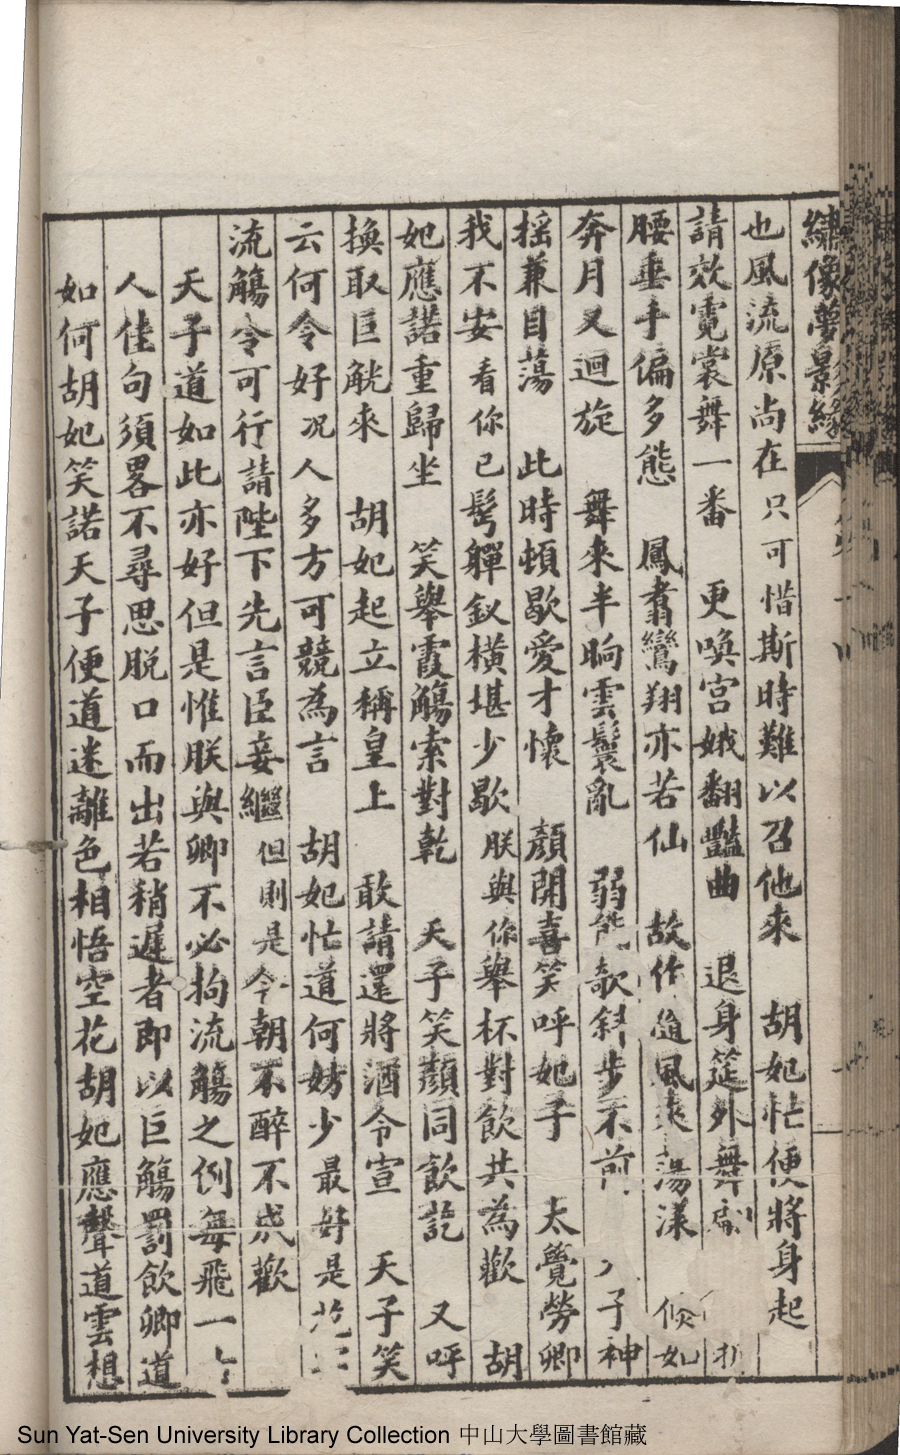 繡像夢景緣
也風流原尚在只可惜斯時難以召他來 胡妃忙便將身起
請效霓裳舞一番 更喚宮娥翻豔曲 退身筵外舞
腰垂手偏多態 鳳翥鸞翔亦若仙 故作隨風 蕩漾 倏如
奔月又迴旋 舞來半晌雲鬟亂 弱 欹斜步不前 子神
搖兼目蕩 此時頓歇愛才懷 顏開喜笑呼妃子 太覺勞卿
我不安看你已髩軃釵橫堪少歇朕與你舉杯對飲共為歡 胡
妃應諾重歸坐 笑舉霞觴索對乾 天子笑顏同飲訖 又呼
換取巨觥來 胡妃起立稱皇上 敢請還將酒令宣 天子笑
云何令好况人多方可競為言 胡妃忙道何妨少最好是
流觴令可行請陛下先言臣妾繼但則是今朝不醉不成歡
天子道如此亦好但是惟朕與卿不必拘流觴之例每飛一
人佳句須畧不尋思脱口而出若稍遲者即以巨觴罰飲卿道
如何胡妃笑諾天子便道迷離色相悟空花胡妃應聲道雲想
Sun Yat-Sen University Library Collection 中山大學圖書館藏